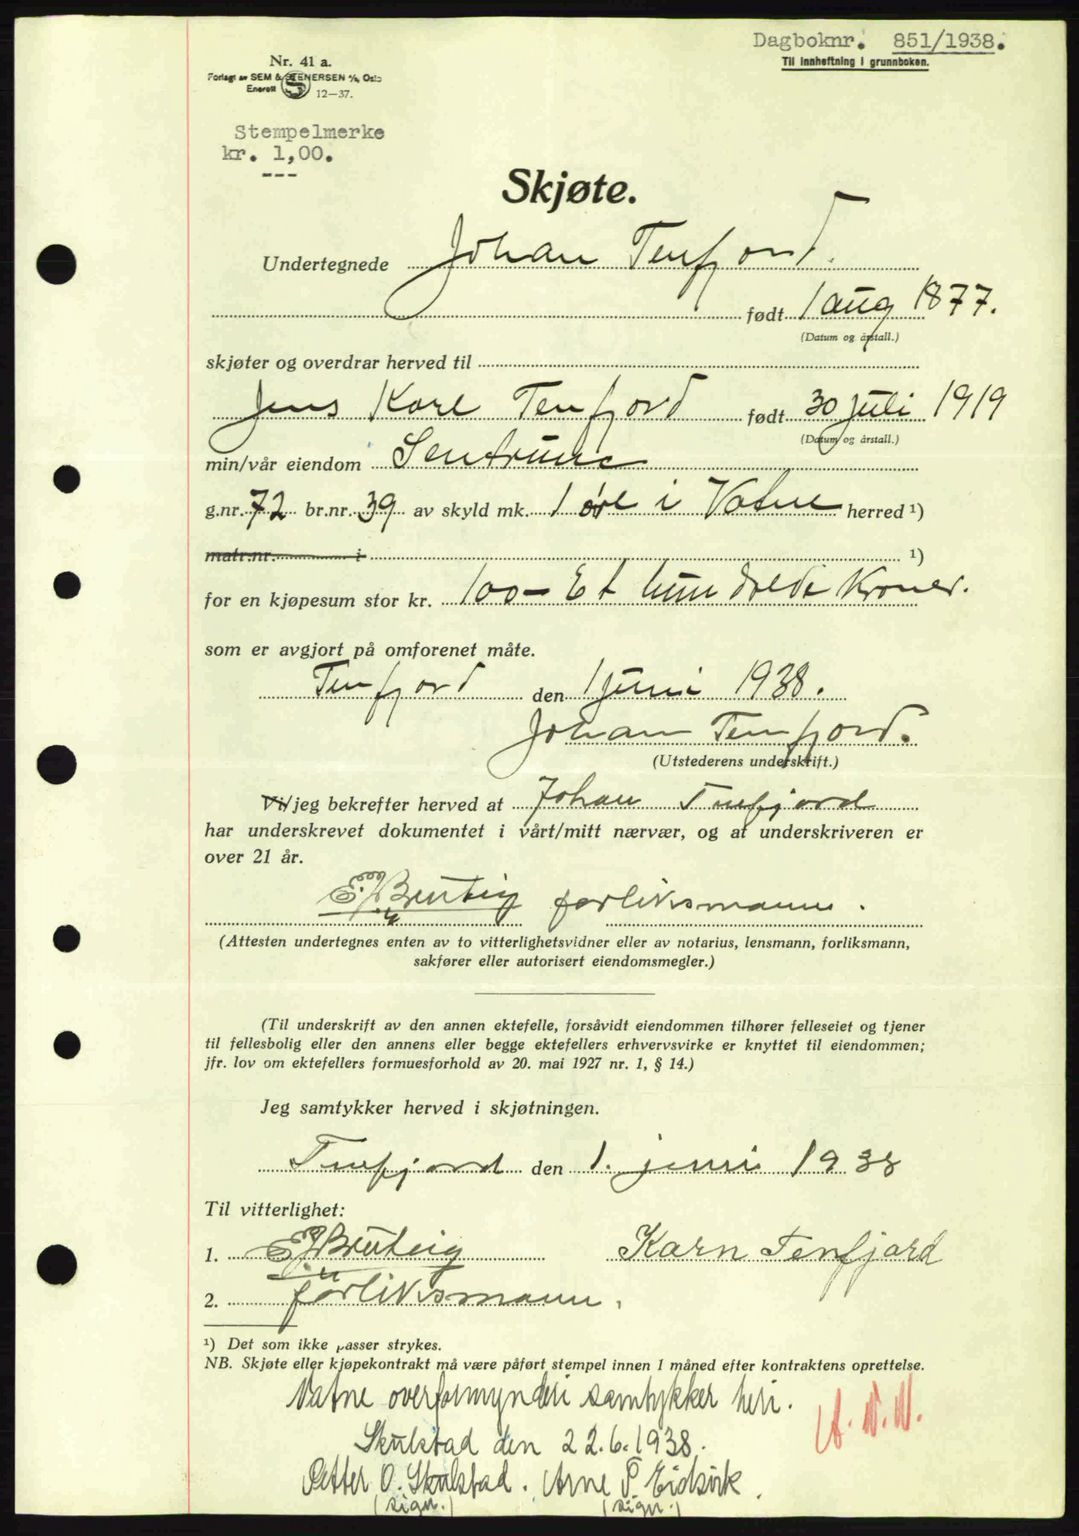 Dagboknr. 851/1938.
Til innheftning i grunnboken.
Nr. 41 a.
Forlagt av SEM & STENERSEN A/S, Oslo
Enerett 12—37.
Stempelmerke
kr. 1,00.
Skjøte.
Undertegnede Johan Tenfjord.
født 1 aug 1877.
(Datum og årstall.)
skjøter og overdrar herved til
Jens Kare Tenfjord født 30 juli 1919
(Datum og årstall.)
min/vår eiendom Sentrum
g.nr. 72 br.nr. 39 av skyld mk. 1 øre i Vatne herred ¹)
matr.nr. i ¹)
for en kjøpesum stor kr. 100 — Et hundrede Kroner.
som er avgjort på omforenet måte.
Tenfjord den 1 juni 1938.
Johan Tenfjord.
(Utstederens underskrift.)
Vi/jeg bekrefter herved at Johan Tenfjord
har underskrevet dokumentet i vårt/mitt nærvær, og at underskriveren er
over 21 år.
E. J. Bruteig forliksmann.
(Attesten undertegnes enten av to vitterlighetsvidner eller av notarius, lensmann, forliksmann,
sakfører eller autorisert eiendomsmegler.)
(Til underskrift av den annen ektefelle, forsåvidt eiendommen tilhører felleseiet og tjener
til fellesbolig eller den annens eller begge ektefellers erhvervsvirke er knyttet til eiendommen;
jfr. lov om ektefellers formuesforhold av 20. mai 1927 nr. 1, § 14.)
Jeg samtykker herved i skjøtningen.
Tenfjord den 1. juni 1938
Til vitterlighet:
1. E. J. Bruteig Karn Tenfjord
2. forliksmann.
¹) Det som ikke passer strykes.
NB. Skjøte eller kjøpekontrakt må være påført stempel innen 1 måned efter kontraktens oprettelse.
Vatne overformynderi samtykker heri.
Skulstad den 22.6.1938.
Petter O. Skulstad. Arne P. Eidsvik.
(sign.) (sign.)